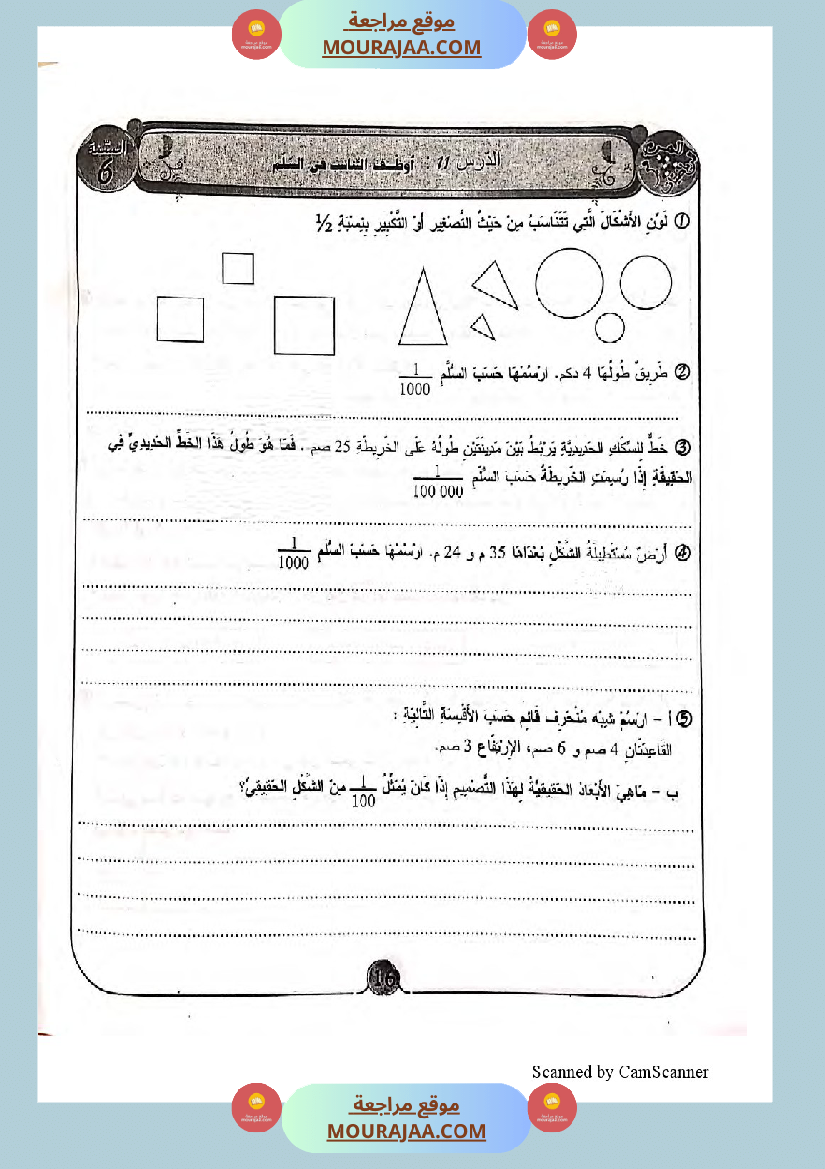 موقع مراجعة
MOURAJAA.COM
السنة
6
الدرس 11 : أوظف التناسب في السلم
① لَوِّنِ الأَشْكَالَ الَّتِي تَتَنَاسَبُ مِنْ حَيْثُ التَّصْغِيرِ أَوْ التَّكْبِيرِ بِنِسْبَةِ ½
② طَرِيقٌ طُولُهَا 4 دكم. ارْسُمْهَا حَسَبَ السُّلَّمِ 1/1000
③ خَطٌّ لِلسِّكَكِ الحَدِيدِيَّةِ يَرْبُطُ بَيْنَ مَدِينَتَيْنِ طُولُهُ عَلَى الخَرِيطَةِ 25 صم . فَمَا هُوَ طُولُ هَذَا الخَطِّ الحَدِيدِيِّ فِي
الحَقِيقَةِ إِذَا رُسِمَتِ الخَرِيطَةُ حَسَبَ السُّلَّمِ 1/100 000
④ أَرْضٌ مُسْتَطِيلَةُ الشَّكْلِ بُعْدَاهَا 35 م و 24 م. ارْسُمْهَا حَسَبَ السُّلَّمِ 1/1000
⑤ أ – ارْسُمْ شِبْهَ مُنْحَرِفٍ قَائِمٍ حَسَبَ الأَقْيِسَةِ التَّالِيَةِ :
القَاعِدَتَانِ 4 صم و 6 صم، الاِرْتِفَاع 3 صم.
ب – مَاهِيَ الأَبْعَادُ الحَقِيقِيَّةُ لِهَذَا التَّصْمِيمِ إِذَا كَانَ يُمَثِّلُ 1/100 مِنَ الشَّكْلِ الحَقِيقِيِّ؟
16
Scanned by CamScanner
موقع مراجعة
MOURAJAA.COM